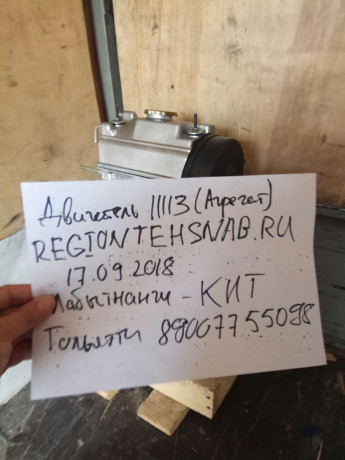 Двигатель 11113 (Агрегат)
REGIONTEHSNAB.RU
17.09.2018
Лабытнанги - КИТ
Тольятти 89007755098